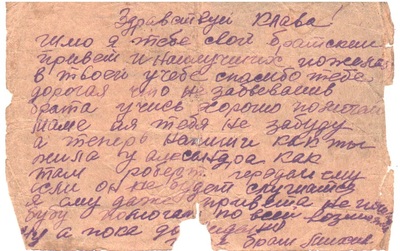 Здравствуй Клава!
Шлю я тебе свой братский
привет и наилучших пожела
в твоей учебе спасибо тебе
дорогая что не забываешь
брата учись хорошо помогай
маме а я тебя не забуду
а теперь напиши как ты
жила у александра как
там роберт передай ему
если он не будет слушатся
я ему даже привета не
буду помогать по всей
ну а пока до
брат